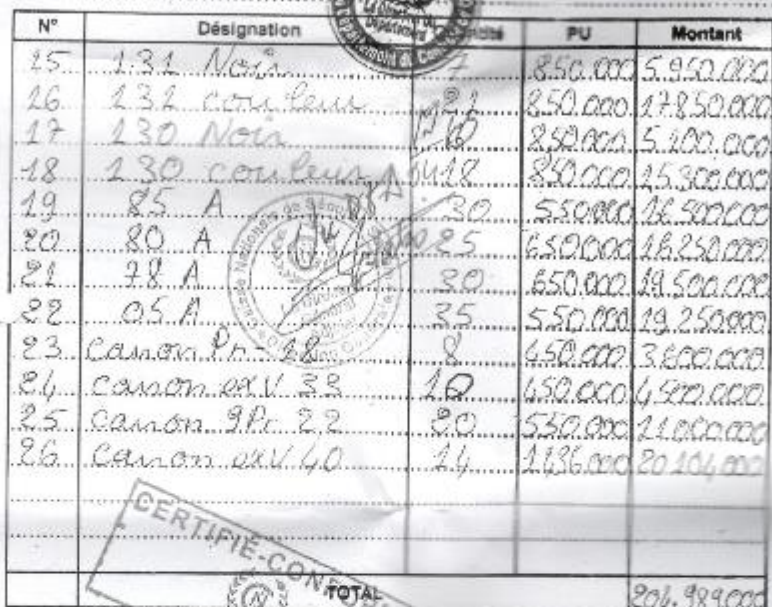 N° Désignation PU Montant
15 131 Noir 7 850.000 5.950.000
16 131 couleur 21 850.000 17.850.000
17 130 Noir 850.000 5.100.000
18 130 couleur 18 850.000 15.300.000
19 85 A 30 550.000 16.500.000
20 80 A 25 650.000 16.250.000
21 78 A 30 650.000 19.500.000
22 05 A 35 550.000 19.250.000
23 canon 8 450.000 3.600.000
24 canon exV 33 10 450.000 4.500.000
25 canon gPr 22 20 550.000 11.000.000
26 canon exV 40 14 1.436.000 20.104.000
CERTIFIE-CONFOR
TOTAL 204.989.000